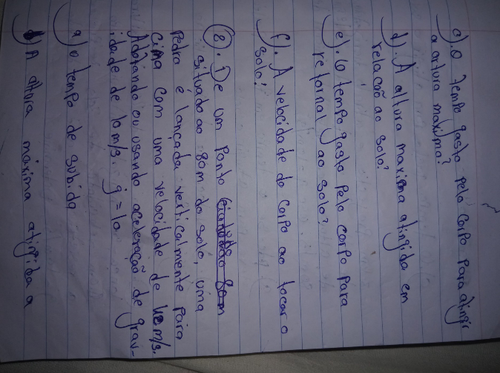 c). O tempo gasto pelo corpo para atingir
a altura máxima?
d). A altura maxima atingida em
relação ao solo?
e). O tempo gasto pelo corpo para
retornar ao solo?
f). A velocidade do corpo ao tocar o
solo?
2). De um ponto
situado ao 80m do solo, uma
pedra é lançada verticalmente para
cima com uma velocidade de m/s.
Adotando ou usando aceleração de grav-
idade de 10m/s. g = 10
a) o tempo de subida
b) A altura máxima atingida a